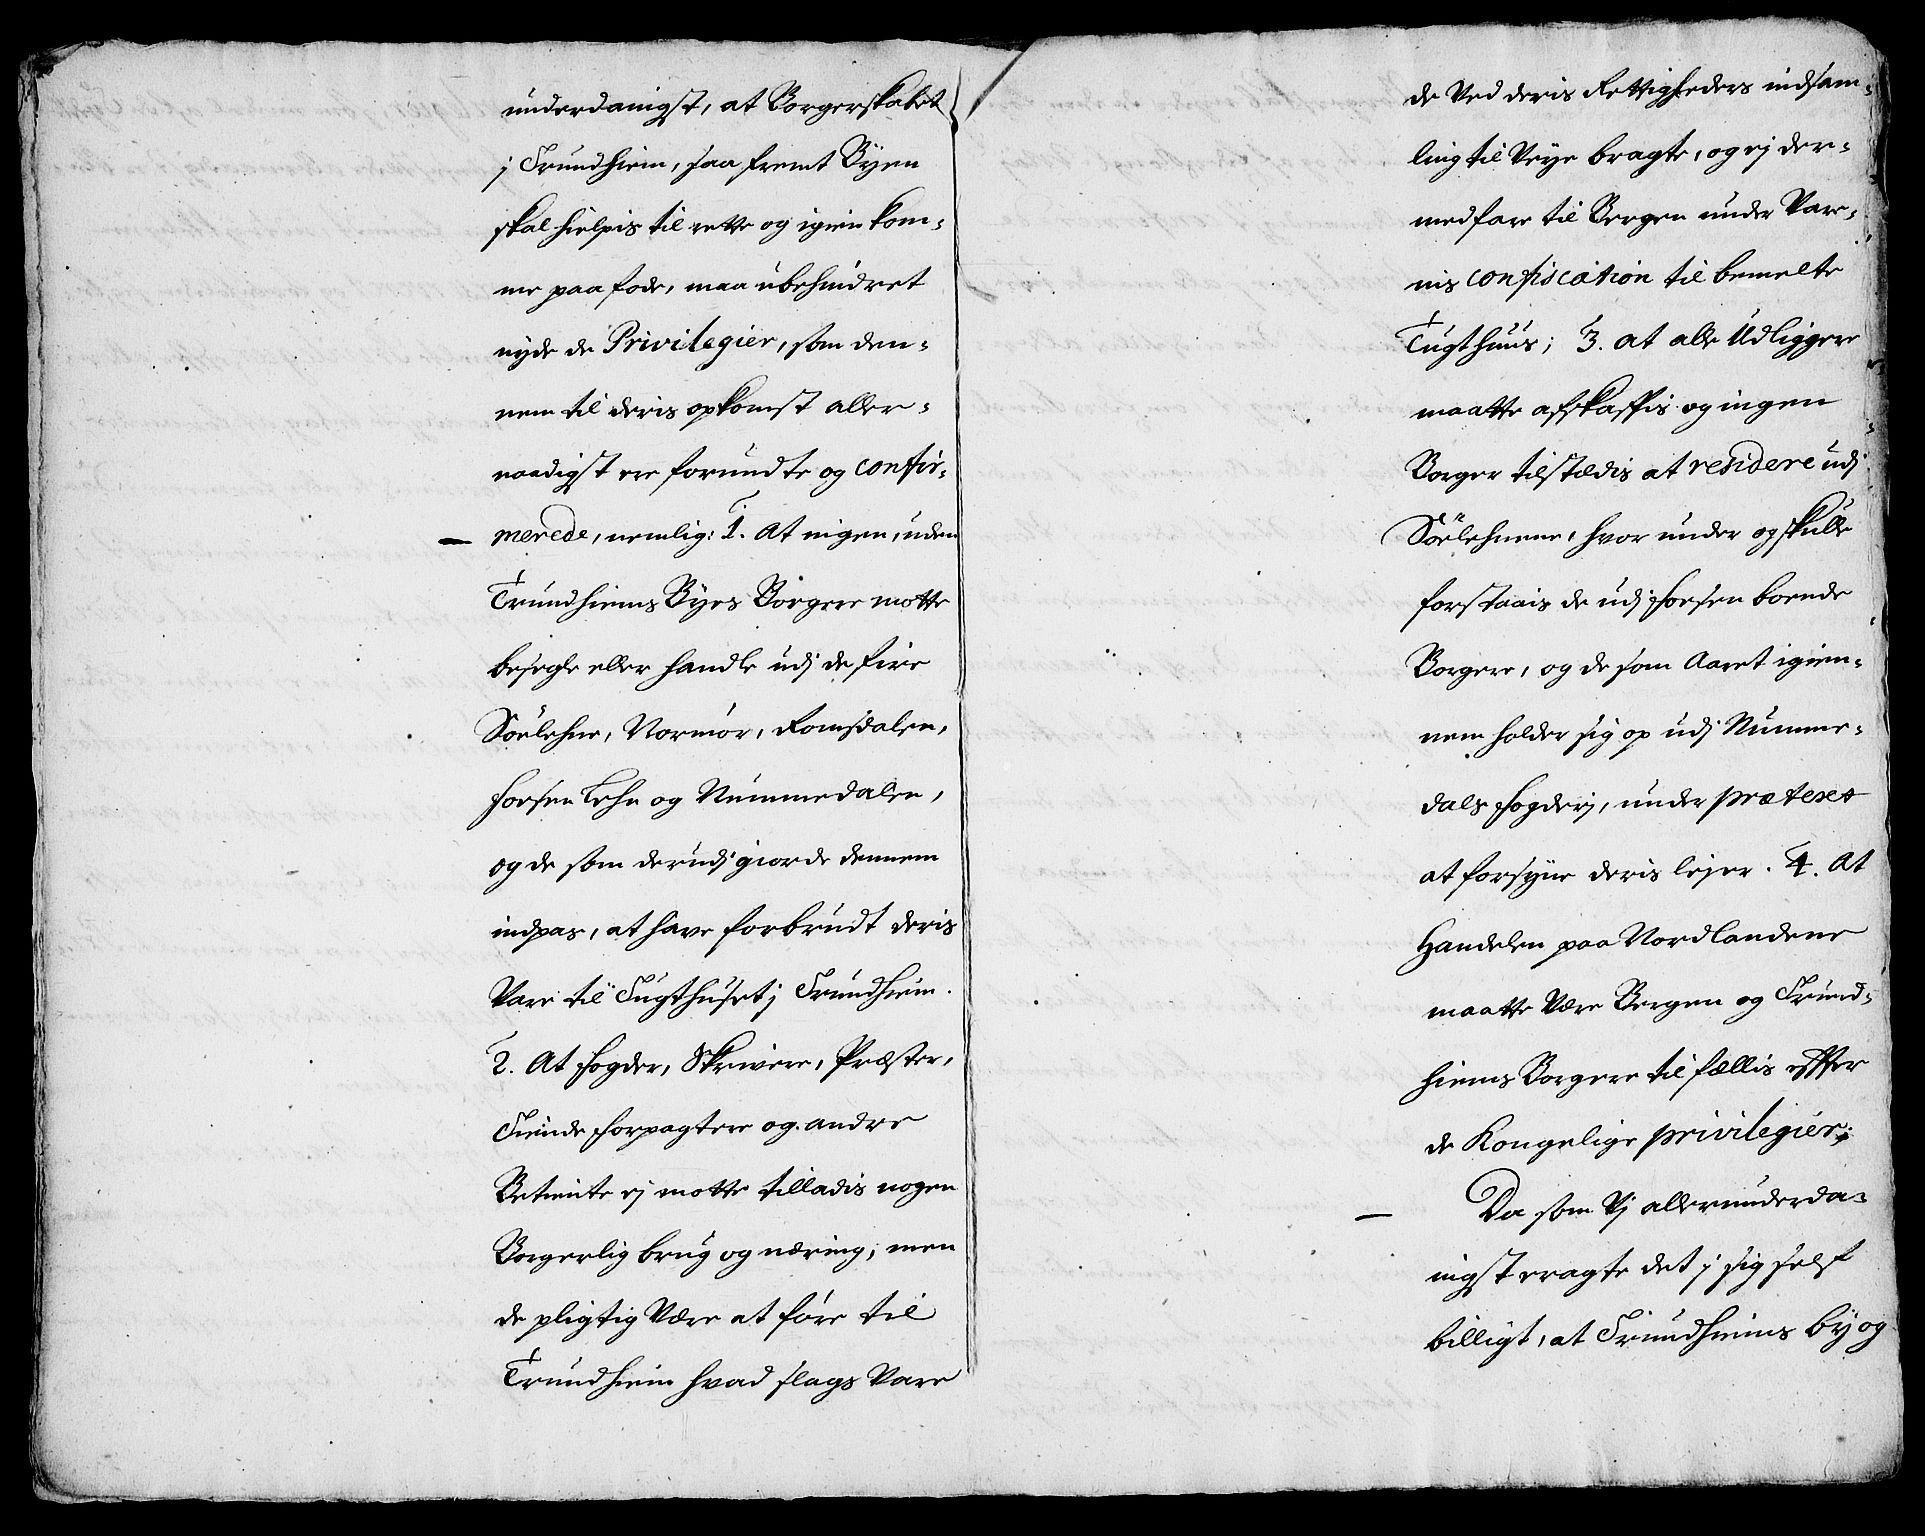 underdanigst, at Borgerskabet
j Trundhiem, saa fremt Byen
skal hielpis til rette og igien kom-
me paa fode, maa ubehindret
nyde de Privilegier, som den-
nem til deris opkomst aller-
naadigst ere forundte og confir-
merede, nemlig: 1. At ingen, uden
Trundhiems Byes Borgere motte
besegle eller handle udj de fire
Söelehne, Normör, Romsdalen,
Foesen Lehn og Nummedalen,
og de som derudj giorde dennem
indpas, at have forbrudt deris
Vare til Tugthuset j Trundhiem.
2. At Fogder, Skrivere, Præster,
Tiende Forpagtere og andre
Betiente ej motte tilladis nogen
Borgerlig brug og næring; men
de pligtig Være at føre til
Trundhiem hvad slags Vare
de Ved deris Rettigheders indsam-
ling til Veye bragte, og ej der-
med fare til Bergen under Vare-
nis confiscation til bemelte
Tugthuus; 3. at alle Udliggere
maatte afskaffis og ingen
Borger tilstædis at residere udj
Söelehnene, hvor under og skulle
forstaais de udj Foesen boende
Borgere, og de som Aaret igien-
nem holder sig op udj Numme-
dals Fogderj, under prætext
at forsyne deris lejer. 4. At
Handelen paa Nordlandene
maatte Være Bergen og Trund-
hiems Borgere til fællis effter
de Kongelige privilegier;
Da som Vj allerunderda-
nigst eragte det j sig self
billigt, at Trundhiems by og